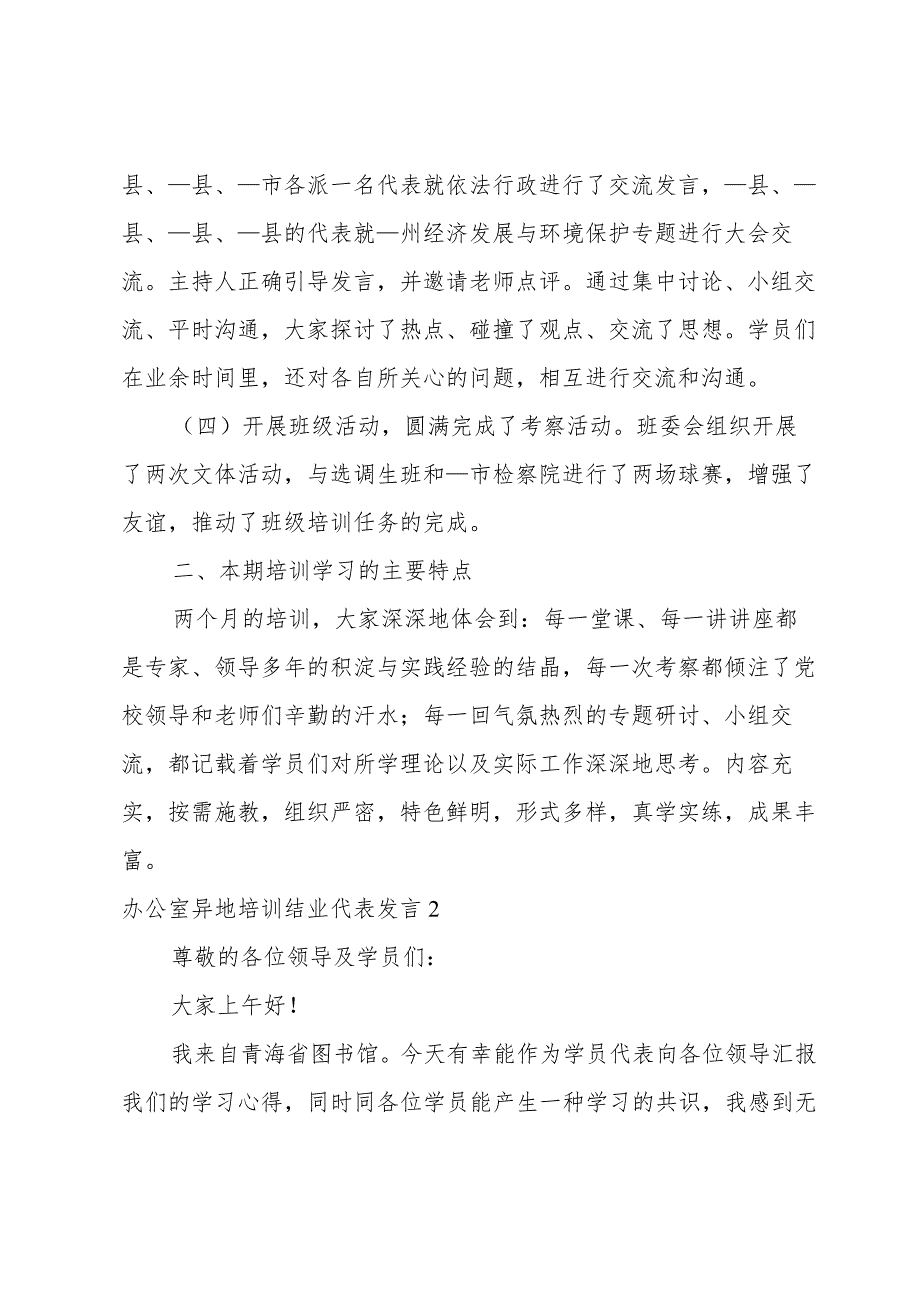 县、—县、—市各派一名代表就依法行政进行了交流发言，—县、—
县、—县、—县的代表就—州经济发展与环境保护专题进行大会交
流。主持人正确引导发言，并邀请老师点评。通过集中讨论、小组交
流、平时沟通，大家探讨了热点、碰撞了观点、交流了思想。学员们
在业余时间里，还对各自所关心的问题，相互进行交流和沟通。
（四）开展班级活动，圆满完成了考察活动。班委会组织开展
了两次文体活动，与选调生班和—市检察院进行了两场球赛，增强了
友谊，推动了班级培训任务的完成。
二、本期培训学习的主要特点
两个月的培训，大家深深地体会到：每一堂课、每一讲讲座都
是专家、领导多年的积淀与实践经验的结晶，每一次考察都倾注了党
校领导和老师们辛勤的汗水；每一回气氛热烈的专题研讨、小组交
流，都记载着学员们对所学理论以及实际工作深深地思考。内容充
实，按需施教，组织严密，特色鲜明，形式多样，真学实练，成果丰
富。
办公室异地培训结业代表发言2
尊敬的各位领导及学员们：
大家上午好！
我来自青海省图书馆。今天有幸能作为学员代表向各位领导汇报
我们的学习心得，同时同各位学员能产生一种学习的共识，我感到无